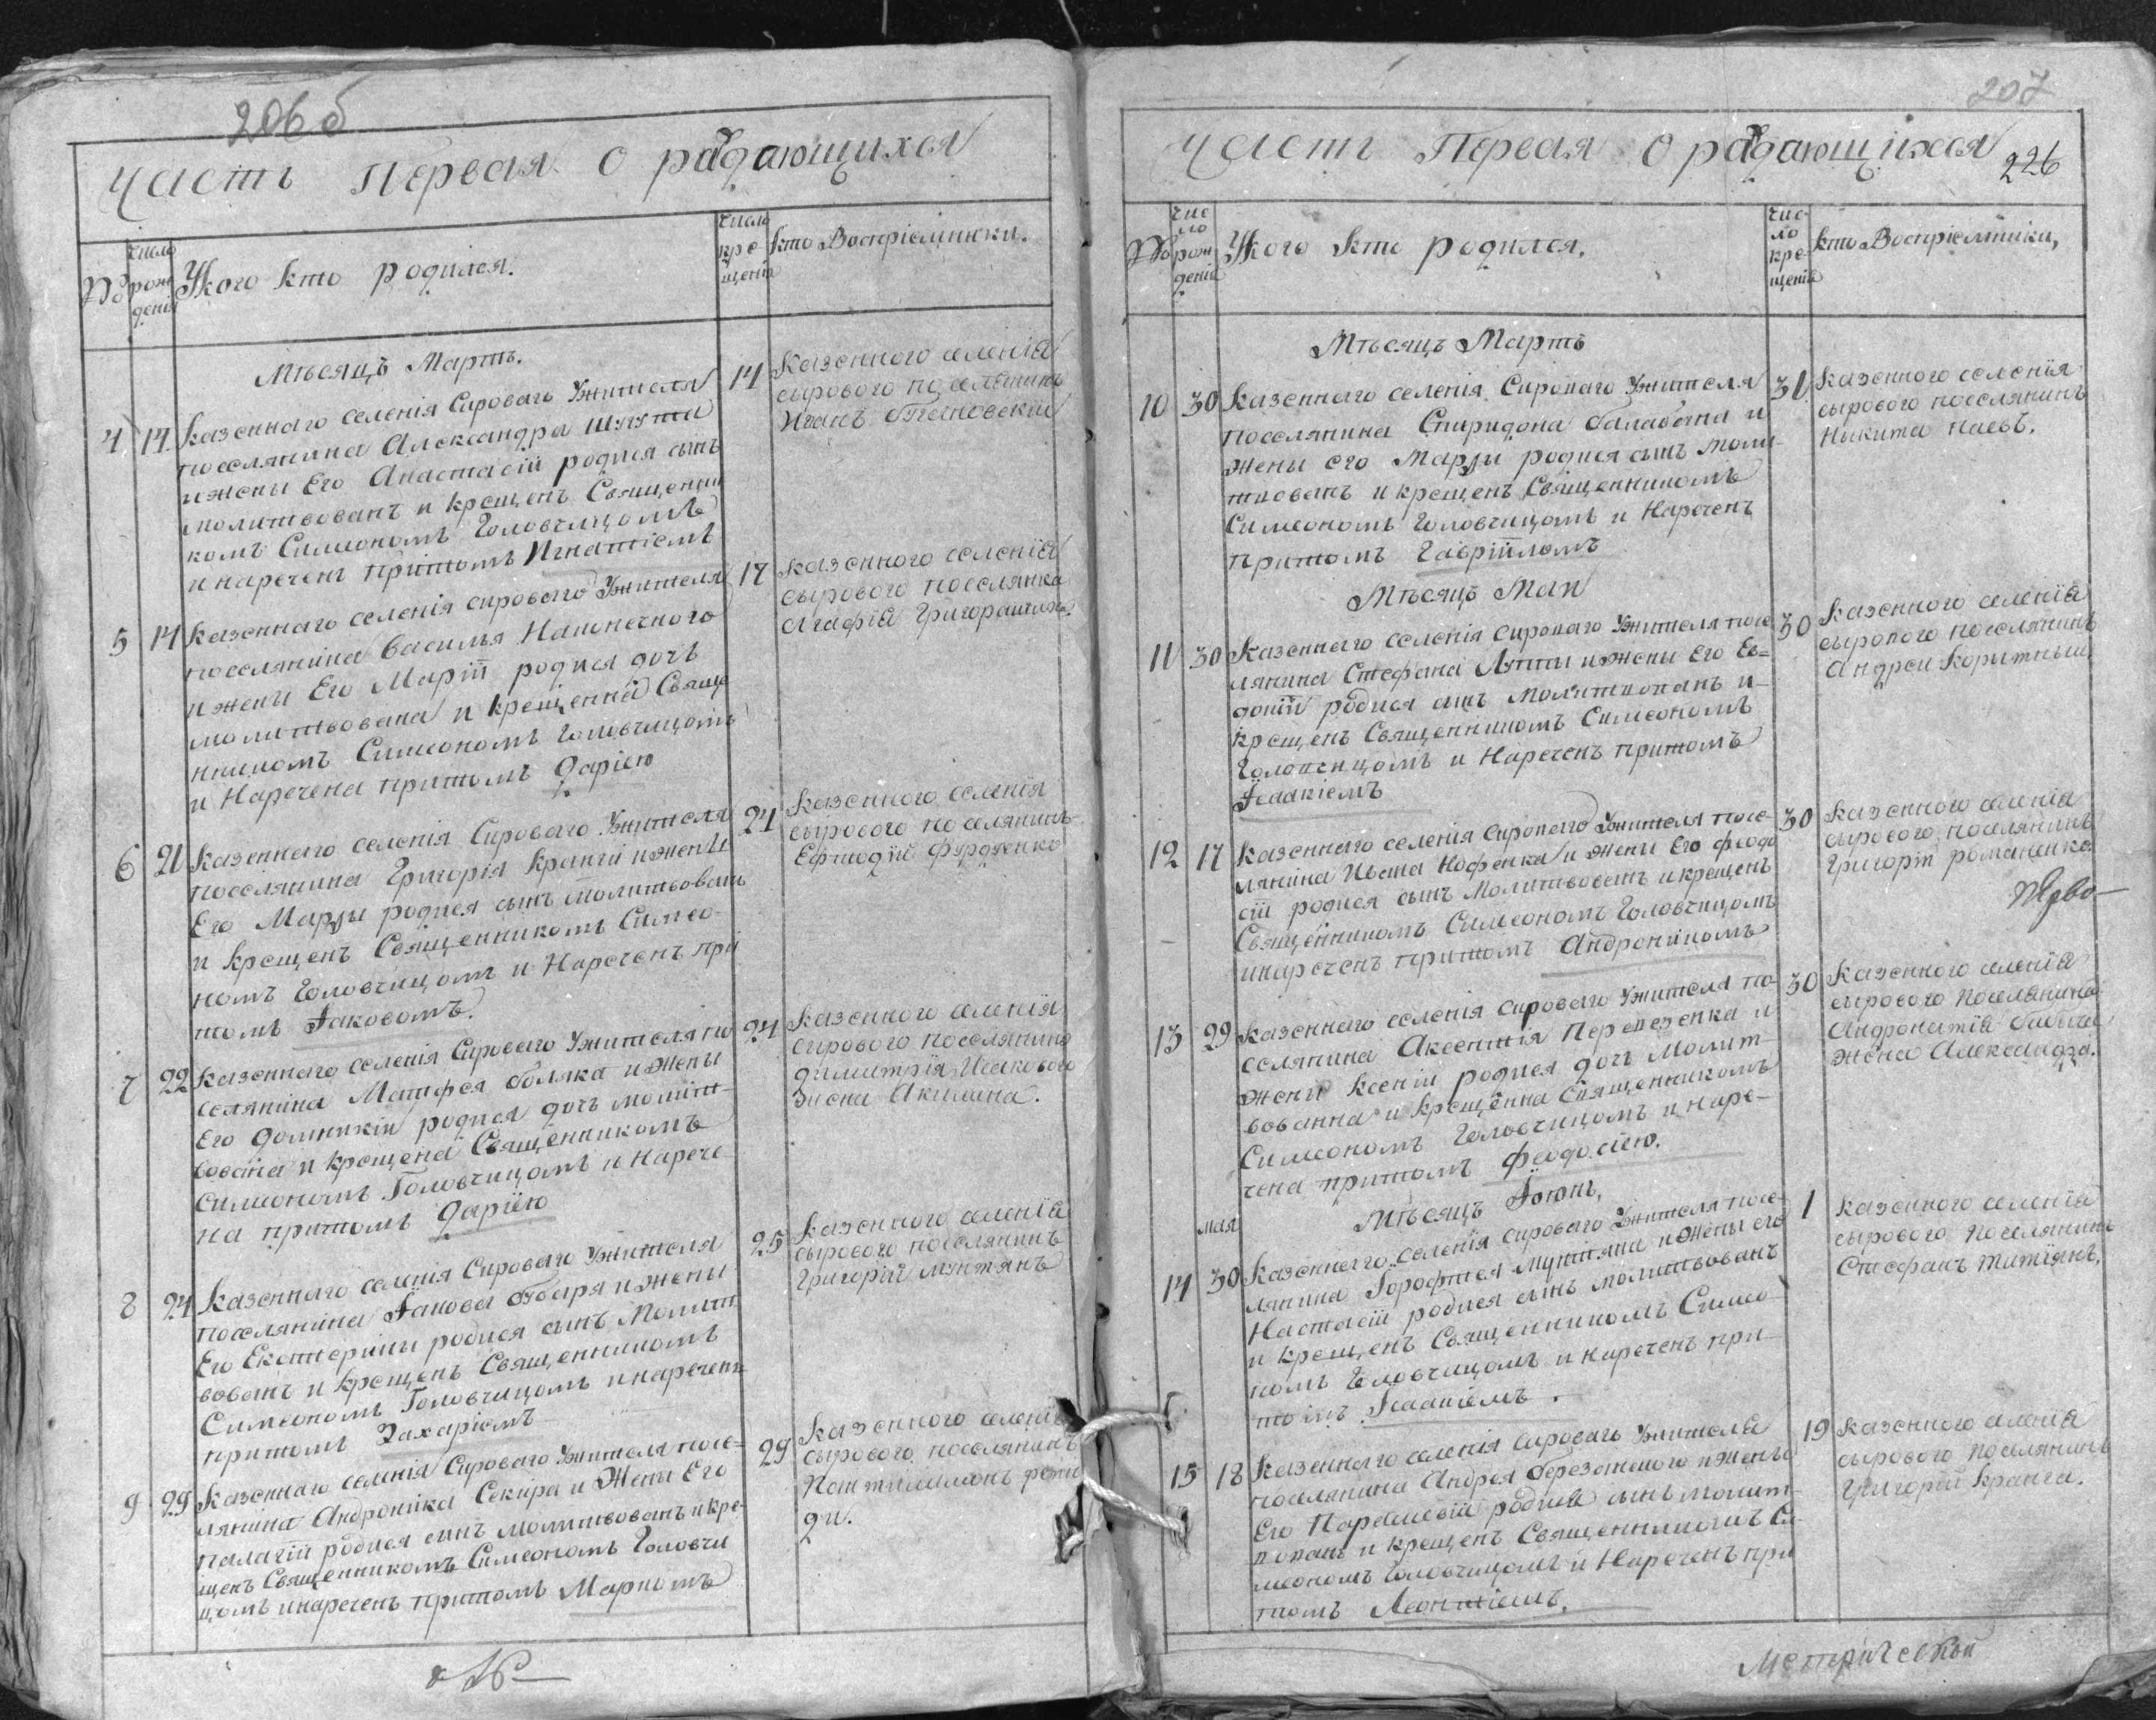 206 б
Часть Первая О раждающихся
№
число рождения
У кого кто родился.
число крещения
кто Восприемники.
Месяцъ Мартъ.
4 14 Казеннаго селенія Сироваго Ужителя
поселянина Александра Шу
и жены Его Анастасіи родися сынъ
молитвованъ и крещенъ Священни
комъ Симеономъ Головчицомъ
и нареченъ притомъ Игнатіемъ
14 Казенного селенія
сырового поселянинъ
Иванъ
5 14 Казеннаго селенія сироваго Ужителя
поселянина Василья Наконечного
и жены Его Маріи родися дочъ
молитвована и крещенна Свяще
нникомъ Симеономъ Головчицомъ
и Наречена притомъ Даріею
17 Казенного селенія
сырового поселянка
Агафія
6 21 Казеннаго селенія Сироваго Ужителя
поселянина Григорія Кранги и жены
Его Марѳы родися сынъ молитвованъ
и крещенъ Священникомъ Симео-
номъ Головчицомъ и Нареченъ при
томъ Іаковомъ.
24 Казенного селенія
сырового поселянинъ
7 22 Казеннаго селенія Сироваго Ужителя по
селянина Матфея Боляка и жены
Его Домникіи родися дочъ молит-
вована и крещена Священникомъ
Симеономъ Головчицомъ и Нарече
на притомъ Даріею
24 Казенного селенія
сирового поселянина
Димитрія Исакового
жена Акилина.
8 24 Казеннаго селенія Сироваго Ужителя
поселянина Іакова и жены
Его Екатерини родися сынъ Молит
вованъ и крещенъ Священникомъ
Симеономъ Головчицомъ и нареченъ
притомъ Захаріемъ
25 Казенного селенія
сырового поселянинъ
Григорій Мунтянъ
9 29 Казеннаго селенія Сироваго Ужителя посе=
лянина Андроника Секира и Жены Его
Палагіи родися синъ молитвованъ и кре-
щенъ Священникомъ Симеономъ Головчи
цомъ и нареченъ притомъ Маркомъ
29 Казенного селенія
сырового поселянинъ
207
Часть Первая О раждающихся
226
№
число рождения
У кого кто родился.
число крещенія
кто Восприемники,
Месяцъ Мартъ
10 30 Казеннаго селенія Сироваго Ужителя
поселянина Спиридона Балабана и
жены его Марѳи родися сынъ моли-
твованъ и крещенъ Священникомъ
Симеономъ Головчицомъ и Нареченъ
притомъ Гавріиломъ
31 Казенного селенія
сырового поселянинъ
Никита Паевъ.
Месяцъ Маи
11 30 Казеннаго селенія Сироваго Ужителя посе
лянина Стефана Лупи и жены Его Ев=
докіи родися сынъ Молитвованъ и-
крещенъ Священникомъ Симеономъ
Головчицомъ и Нареченъ притомъ
Ісаакіемъ
30 Казенного селенія
сырового поселянинъ
Андрей Коритный
12 17 Казеннаго селенія Сироваго Ужителя посе-
лянина Ивана и жены Его Феодо
сіи родися сынъ Молитвованъ и крещенъ
Священникомъ Симеономъ Головчицомъ
и нареченъ притомъ Андроникомъ
30 Казенного селенія
сырового поселянинъ
Григорій Романенко.
13 29 Казеннаго селенія Сироваго Ужителя по-
селянина Аксентія и
жены Ксеніи родися дочъ Молит-
вованна и крещенна Священникомъ
Симеономъ Головчицомъ и Наре-
чена притомъ Феодосіею.
30 Казенного селенія
сырового поселянина
жена Александра.
Месяцъ Іюнь,
мая
14 30 Казеннаго селенія сироваго Ужителя посе-
лянина Дорофтея Мунтяна и жены его
Настасіи родися сынъ молитвованъ
и крещенъ Священникомъ Симео-
номъ Головчицомъ и нареченъ при-
томъ Ісаакіемъ.
1 Казенного селенія
сырового поселянинъ
Стефанъ
15 18 Казеннаго селенія Сироваго Ужителя
поселянина Андрея и жены
Его Параскевіи родися сынъ молит-
вованъ и крещенъ Священникомъ Си-
меономъ Головчицомъ и Нареченъ при
томъ Леонтіемъ.
19 Казенного селенія
сырового поселянинъ
Григорій Кранга.
Метрической